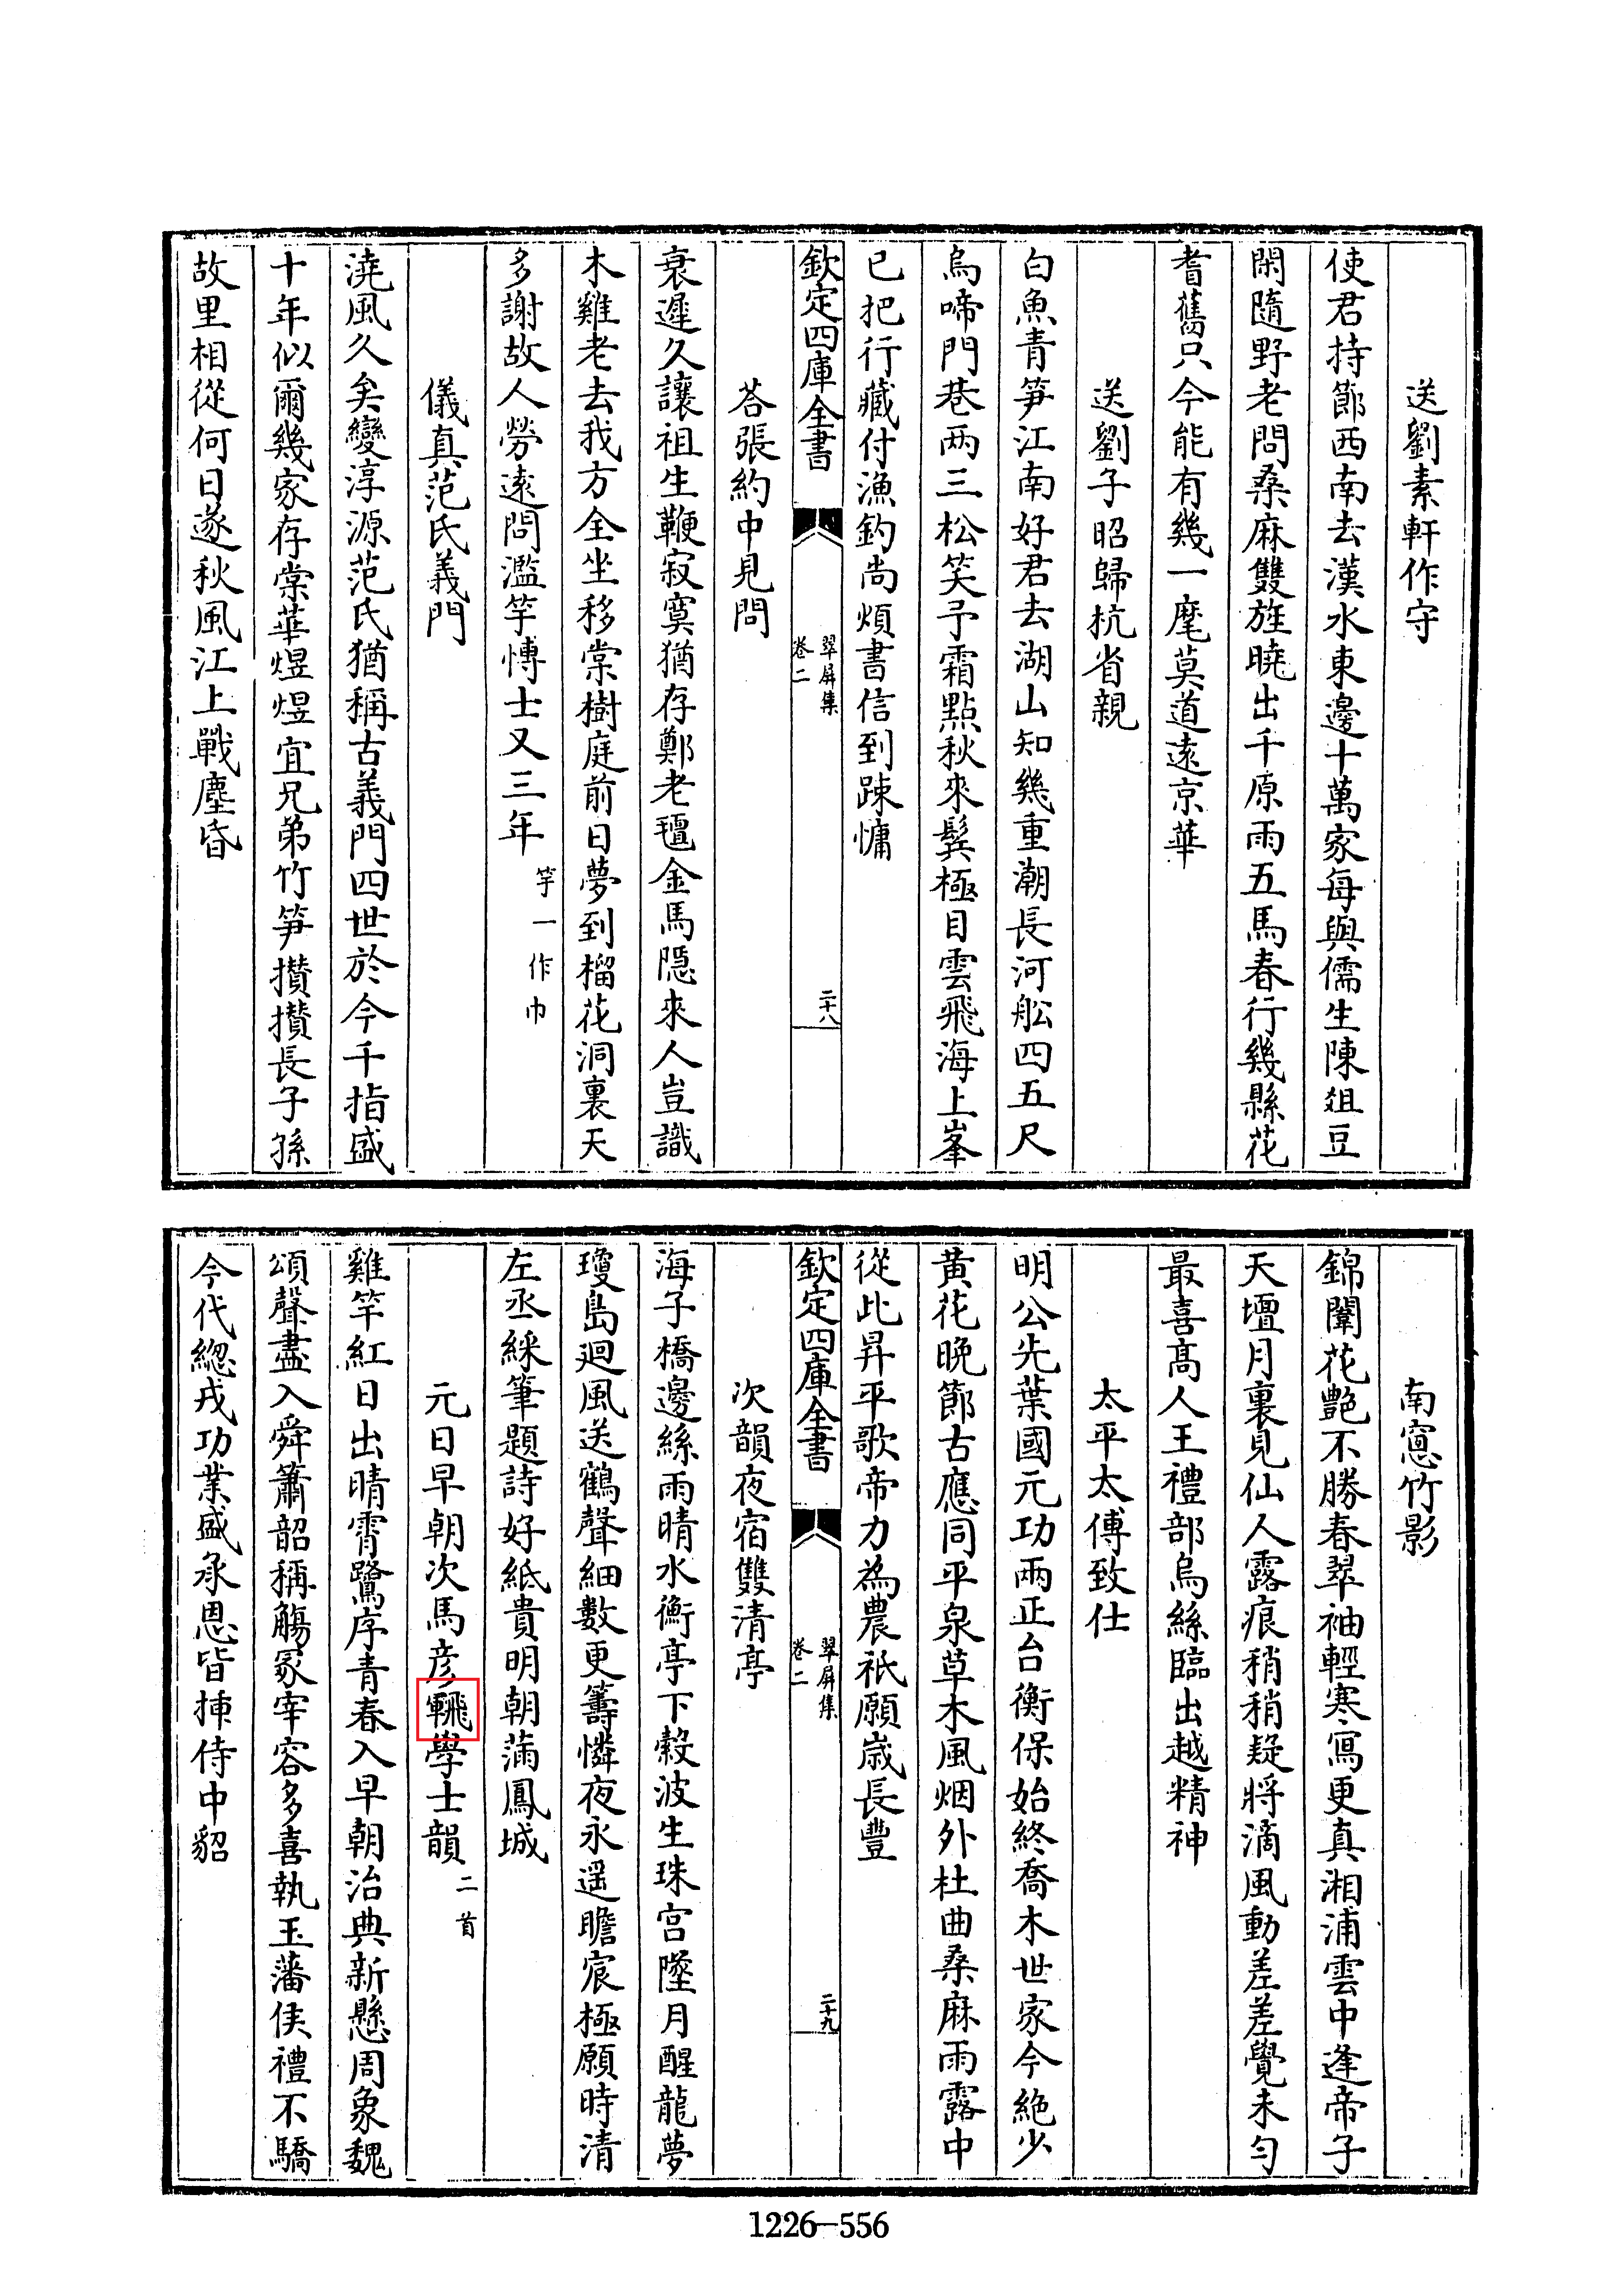 送劉素軒作守
使君持節西南去漢水東邊十萬家每與儒生陳俎豆
閑隨野老問桑麻雙旌曉出千原雨五馬春行幾縣花
耆舊只今能有幾一麾莫道遠京華
送劉子昭歸杭省親
白魚青笋江南好君去湖山知幾重潮長河船四五尺
烏啼門巷兩三松笑予霜點秋來鬂極目雲飛海上峯
已把行藏付漁釣尚煩書信到踈慵
欽定四庫全書
翠屏集
卷二
二十八
荅張約中見問
衰遲久讓祖生鞭寂寞猶存鄭老氊金馬隱來人豈識
木雞老去我方全坐移棠樹庭前日夢到榴花洞裏天
多謝故人勞遠問濫竽愽士又三年竽一作巾
儀真范氏義門
澆風久矣變淳源范氏猶稱古義門四世於今千指盛
十年似爾幾家存棠華煜煜宜兄弟竹笋攢攢長子孫
故里相從何日遂秋風江上戰塵昏
南窻竹影
錦闈花艶不勝春翠袖輕寒寫更真湘浦雲中逢帝子
天壇月裏見仙人露痕稍稍疑將滴風動差差覺未勻
最喜髙人王禮部烏絲臨出越精神
太平太傅致仕
明公先葉國元功兩正台衡保始終喬木世家今絶少
黄花晚節古應同平泉草木風烟外杜曲桑麻雨露中
從此昇平歌帝力為農祇願嵗長豐
欽定四庫全書
翠屏集
卷二
二十九
次韻夜宿雙清亭
海子橋邊絲雨晴水衡亭下縠波生珠宫墜月醒龍夢
瓊島廻風送鶴聲細數更籌憐夜永遥瞻宸極願時清
左丞綵筆題詩好紙貴明朝滿鳳城
元日早朝次馬彦⿰軍飛學士韻二首
雞竿紅日出晴霄鷺序青春入早朝治典新懸周象魏
頌聲盡入舜簫韶稱觴冢宰容多喜執玉藩侯禮不驕
今代緫戎功業盛承恩皆揷侍中貂
1226—556